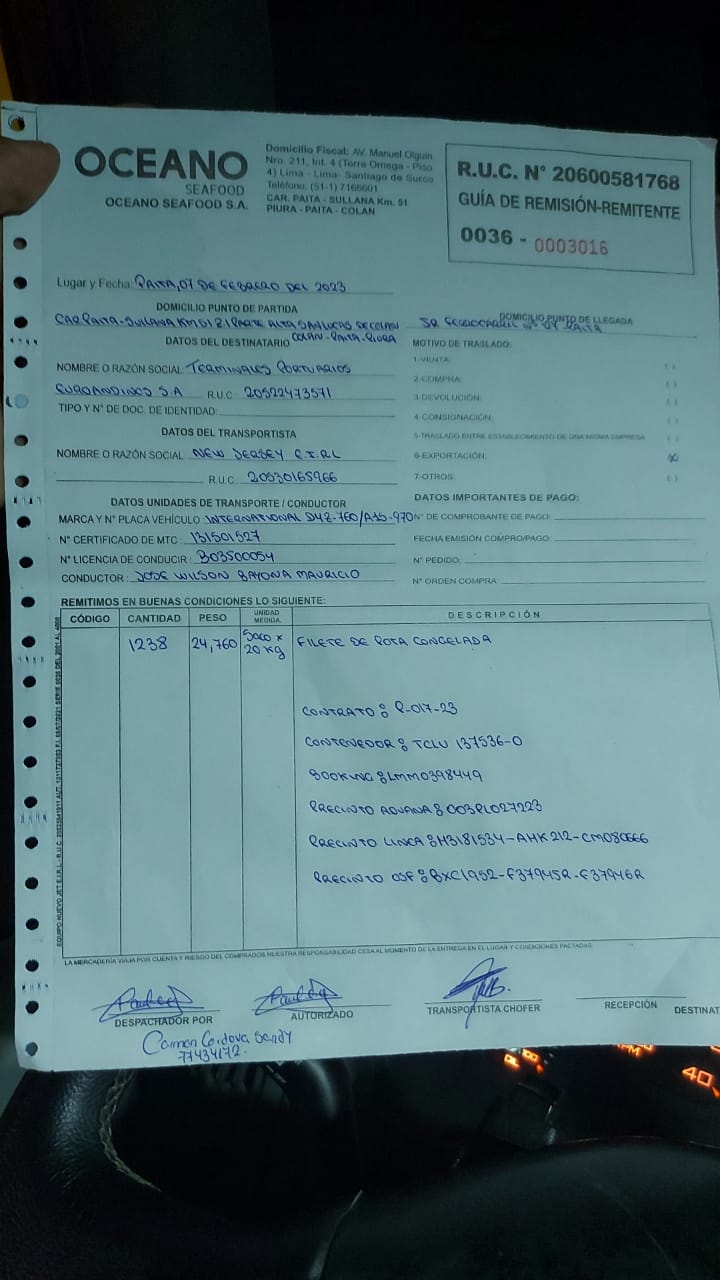 OCEANO
SEAFOOD
OCEANO SEAFOOD S.A.
Domicilio Fiscal: AV. Manuel Olguin
Nro. 211, Int. 4 (Torre Omega - Piso
4) Lima - Lima- Santiago de Surco
Teléfono: (51-1) 7166601
CAR. PAITA - SULLANA Km. 51
PIURA - PAITA - COLAN
R.U.C. N° 20600581768
GUÍA DE REMISIÓN-REMITENTE
0036 - 0003016
Lugar y Fecha: PAITA, 07 DE FEBRERO DEL 2023
DOMICILIO PUNTO DE PARTIDA
CAR PAITA-SULLANA KM 51 2 PARTE ALTA SAN LUCAS DE COLAN
COLAN-PAITA-PIURA
DOMICILIO PUNTO DE LLEGADA
JR FERROCARRIL PAITA
DATOS DEL DESTINATARIO
NOMBRE O RAZÓN SOCIAL TERMINALES PORTUARIOS
EUROANDINOS S.A R.U.C: 20522473571
TIPO Y N° DE DOC. DE IDENTIDAD:
DATOS DEL TRANSPORTISTA
NOMBRE O RAZÓN SOCIAL NEW JERSEY E.I.R.L
R.U.C 20530165966
MOTIVO DE TRASLADO:
1-VENTA: ( )
2-COMPRA: ( )
3-DEVOLUCIÓN: ( )
4-CONSIGNACIÓN: ( )
5-TRASLADO ENTRE ESTABLECIMIENTO DE UNA MISMA EMPRESA ( )
6-EXPORTACIÓN: (X)
7-OTROS: ( )
DATOS UNIDADES DE TRANSPORTE / CONDUCTOR
MARCA Y N° PLACA VEHÍCULO: INTERNATIONAL D4Z-760/A7S-970
N° CERTIFICADO DE MTC: 131501527
N° LICENCIA DE CONDUCIR: B03500054
CONDUCTOR: JOSE WILSON BAYONA MAURICIO
DATOS IMPORTANTES DE PAGO:
N° DE COMPROBANTE DE PAGO:
FECHA EMISIÓN COMPRO/PAGO:
N° PEDIDO:
N° ORDEN COMPRA:
REMITIMOS EN BUENAS CONDICIONES LO SIGUIENTE:
CÓDIGO CANTIDAD PESO UNIDAD MEDIDA DESCRIPCIÓN
1238 24,760 SACO X 20 KG FILETE DE POTA CONGELADA
CONTRATO: P-017-23
CONTENEDOR: TCLU 137536-0
BOOKING: LMM0398449
PRECINTO ADUANA: 003PL027223
PRECINTO LINEA: H3181534-AHK212-CM080666
PRECINTO OSF: BXC1952-F37945R-F37946R
LA MERCADERÍA VIAJA POR CUENTA Y RIESGO DEL COMPRADOS NUESTRA RESPONSABILIDAD CESA AL MOMENTO DE LA ENTREGA EN EL LUGAR Y CONDICIONES PACTADAS
DESPACHADOR POR
AUTORIZADO
TRANSPORTISTA CHOFER
RECEPCIÓN
DESTINAT
Carmen Cordova Sandy
77434172.
40